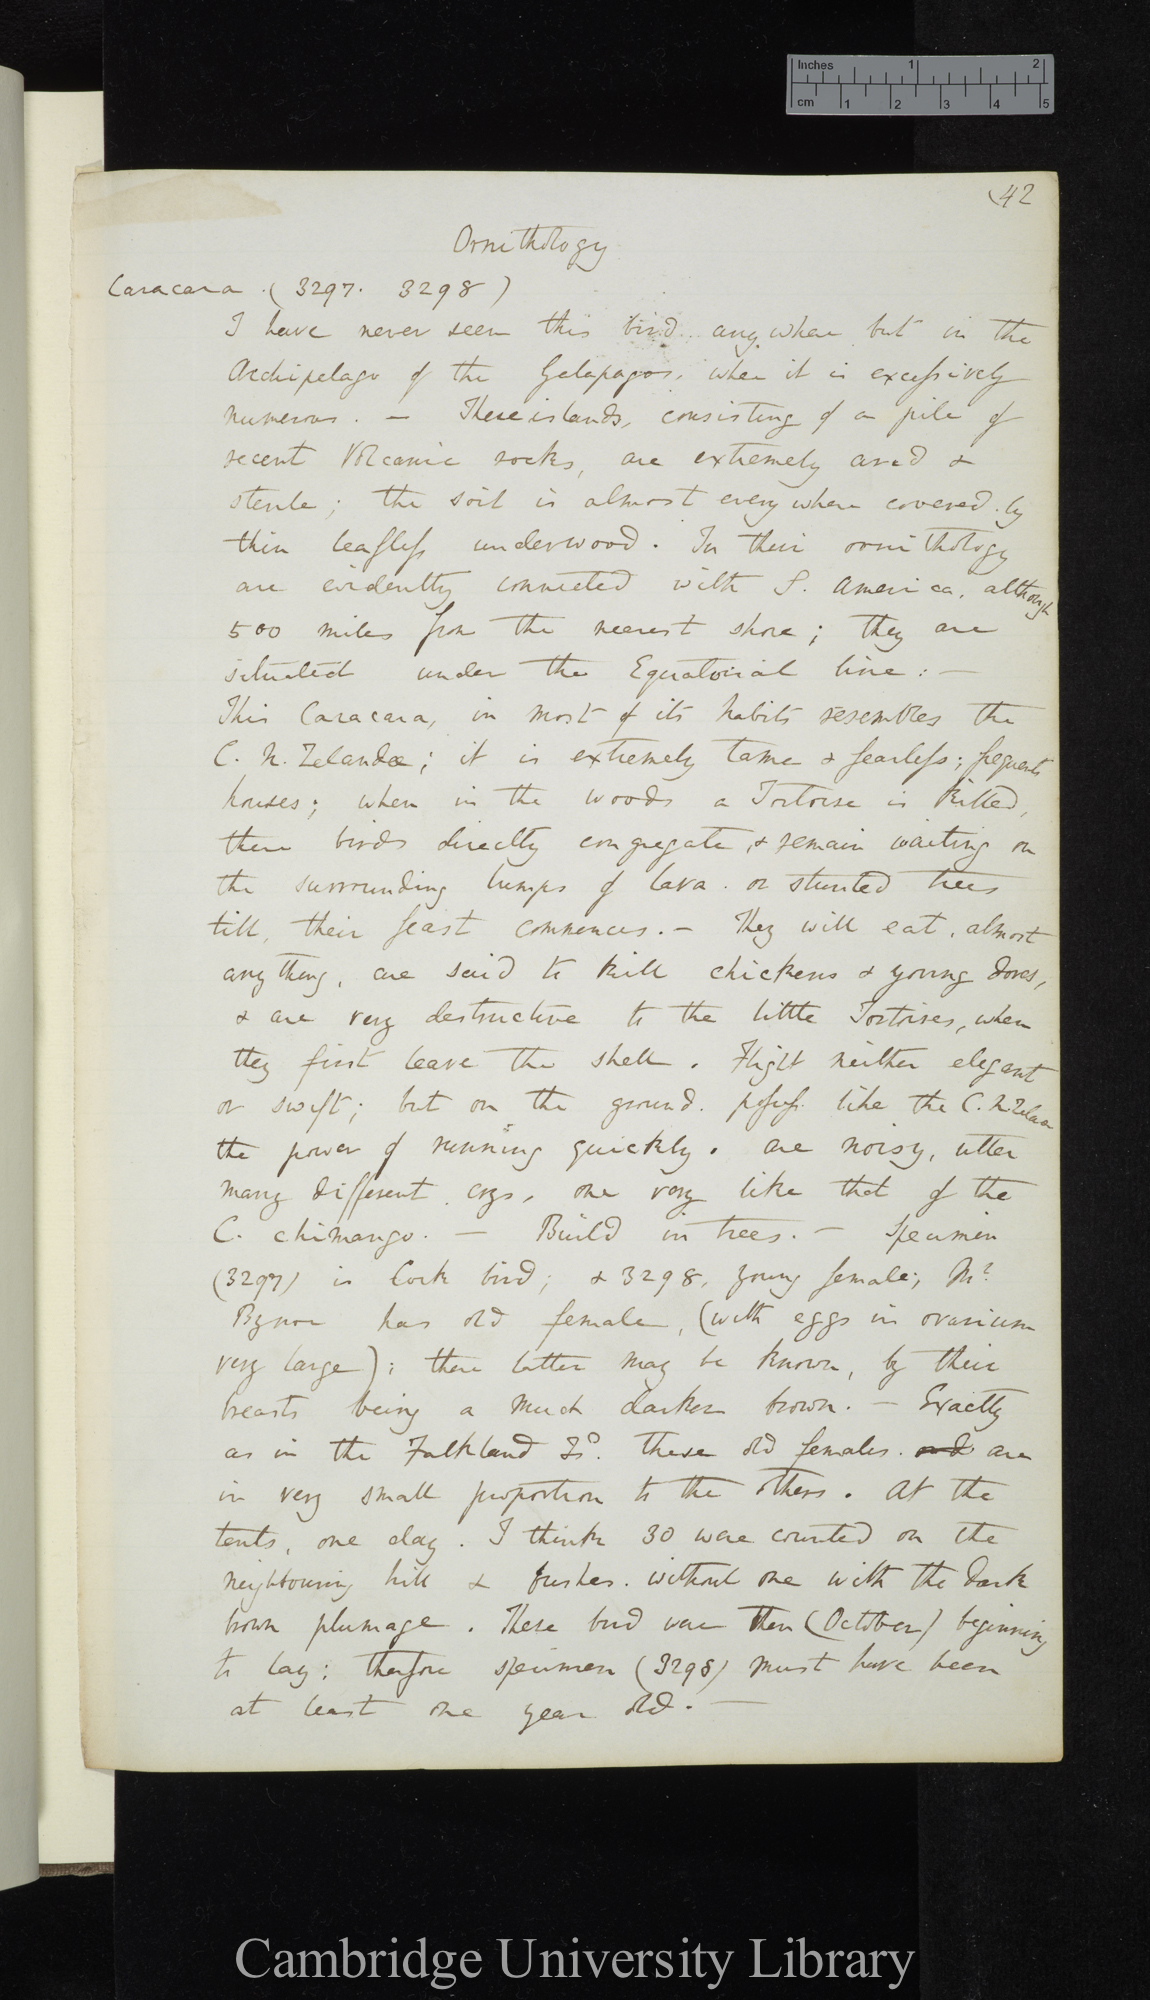 Inches 1 2
cm 1 2 3 4 5
42
Ornithology
Caracara. (3297. 3298)
I have never seen this bird anywhere but in the
Archipelago of the Galapagos, where it is excessively
numerous. — These islands, consisting of a pile of
recent Volcanic rocks, are extremely arid &
sterile; the soil is almost every where covered by
thin leafless underwood. In their ornithology
are evidently connected with S. America, although
500 miles from the nearest shore; they are
situated under the Equatorial line: —
This Caracara, in most of its habits resembles the
C. N. Zelandæ; it is extremely tame & fearless; frequents
houses; when in the woods a Tortoise is killed,
these birds directly congregate, & remain waiting on
the surrounding lumps of lava or stunted trees
till, their feast commences. — They will eat, almost
any thing, are said to kill chickens & young doves,
& are very destructive to the little Tortoises, when
they first leave the shell. Flight neither elegant
or swift; but on the ground. possess like the C. N. Zelan
the power of running quickly. are noisy, utter
many different crys, one very like that of the
C. chimango. — Build in trees. — Specimen
(3297) is Cock bird; & 3298, young female; Mr.
Bynoe has old female, (with eggs in ovarium
very large); these latter may be known, by their
breasts being a much darker brown. — Exactly
as in the Falkland Is. these old females and are
in very small proportion to the others. At the
tents, one day. I think 30 were counted on the
neighbouring hill & bushes. without one with the dark
brown plumage. These bird were then (October) beginning
to lay; therefore specimen (3298) must have been
at least one year old. —
Cambridge University Library